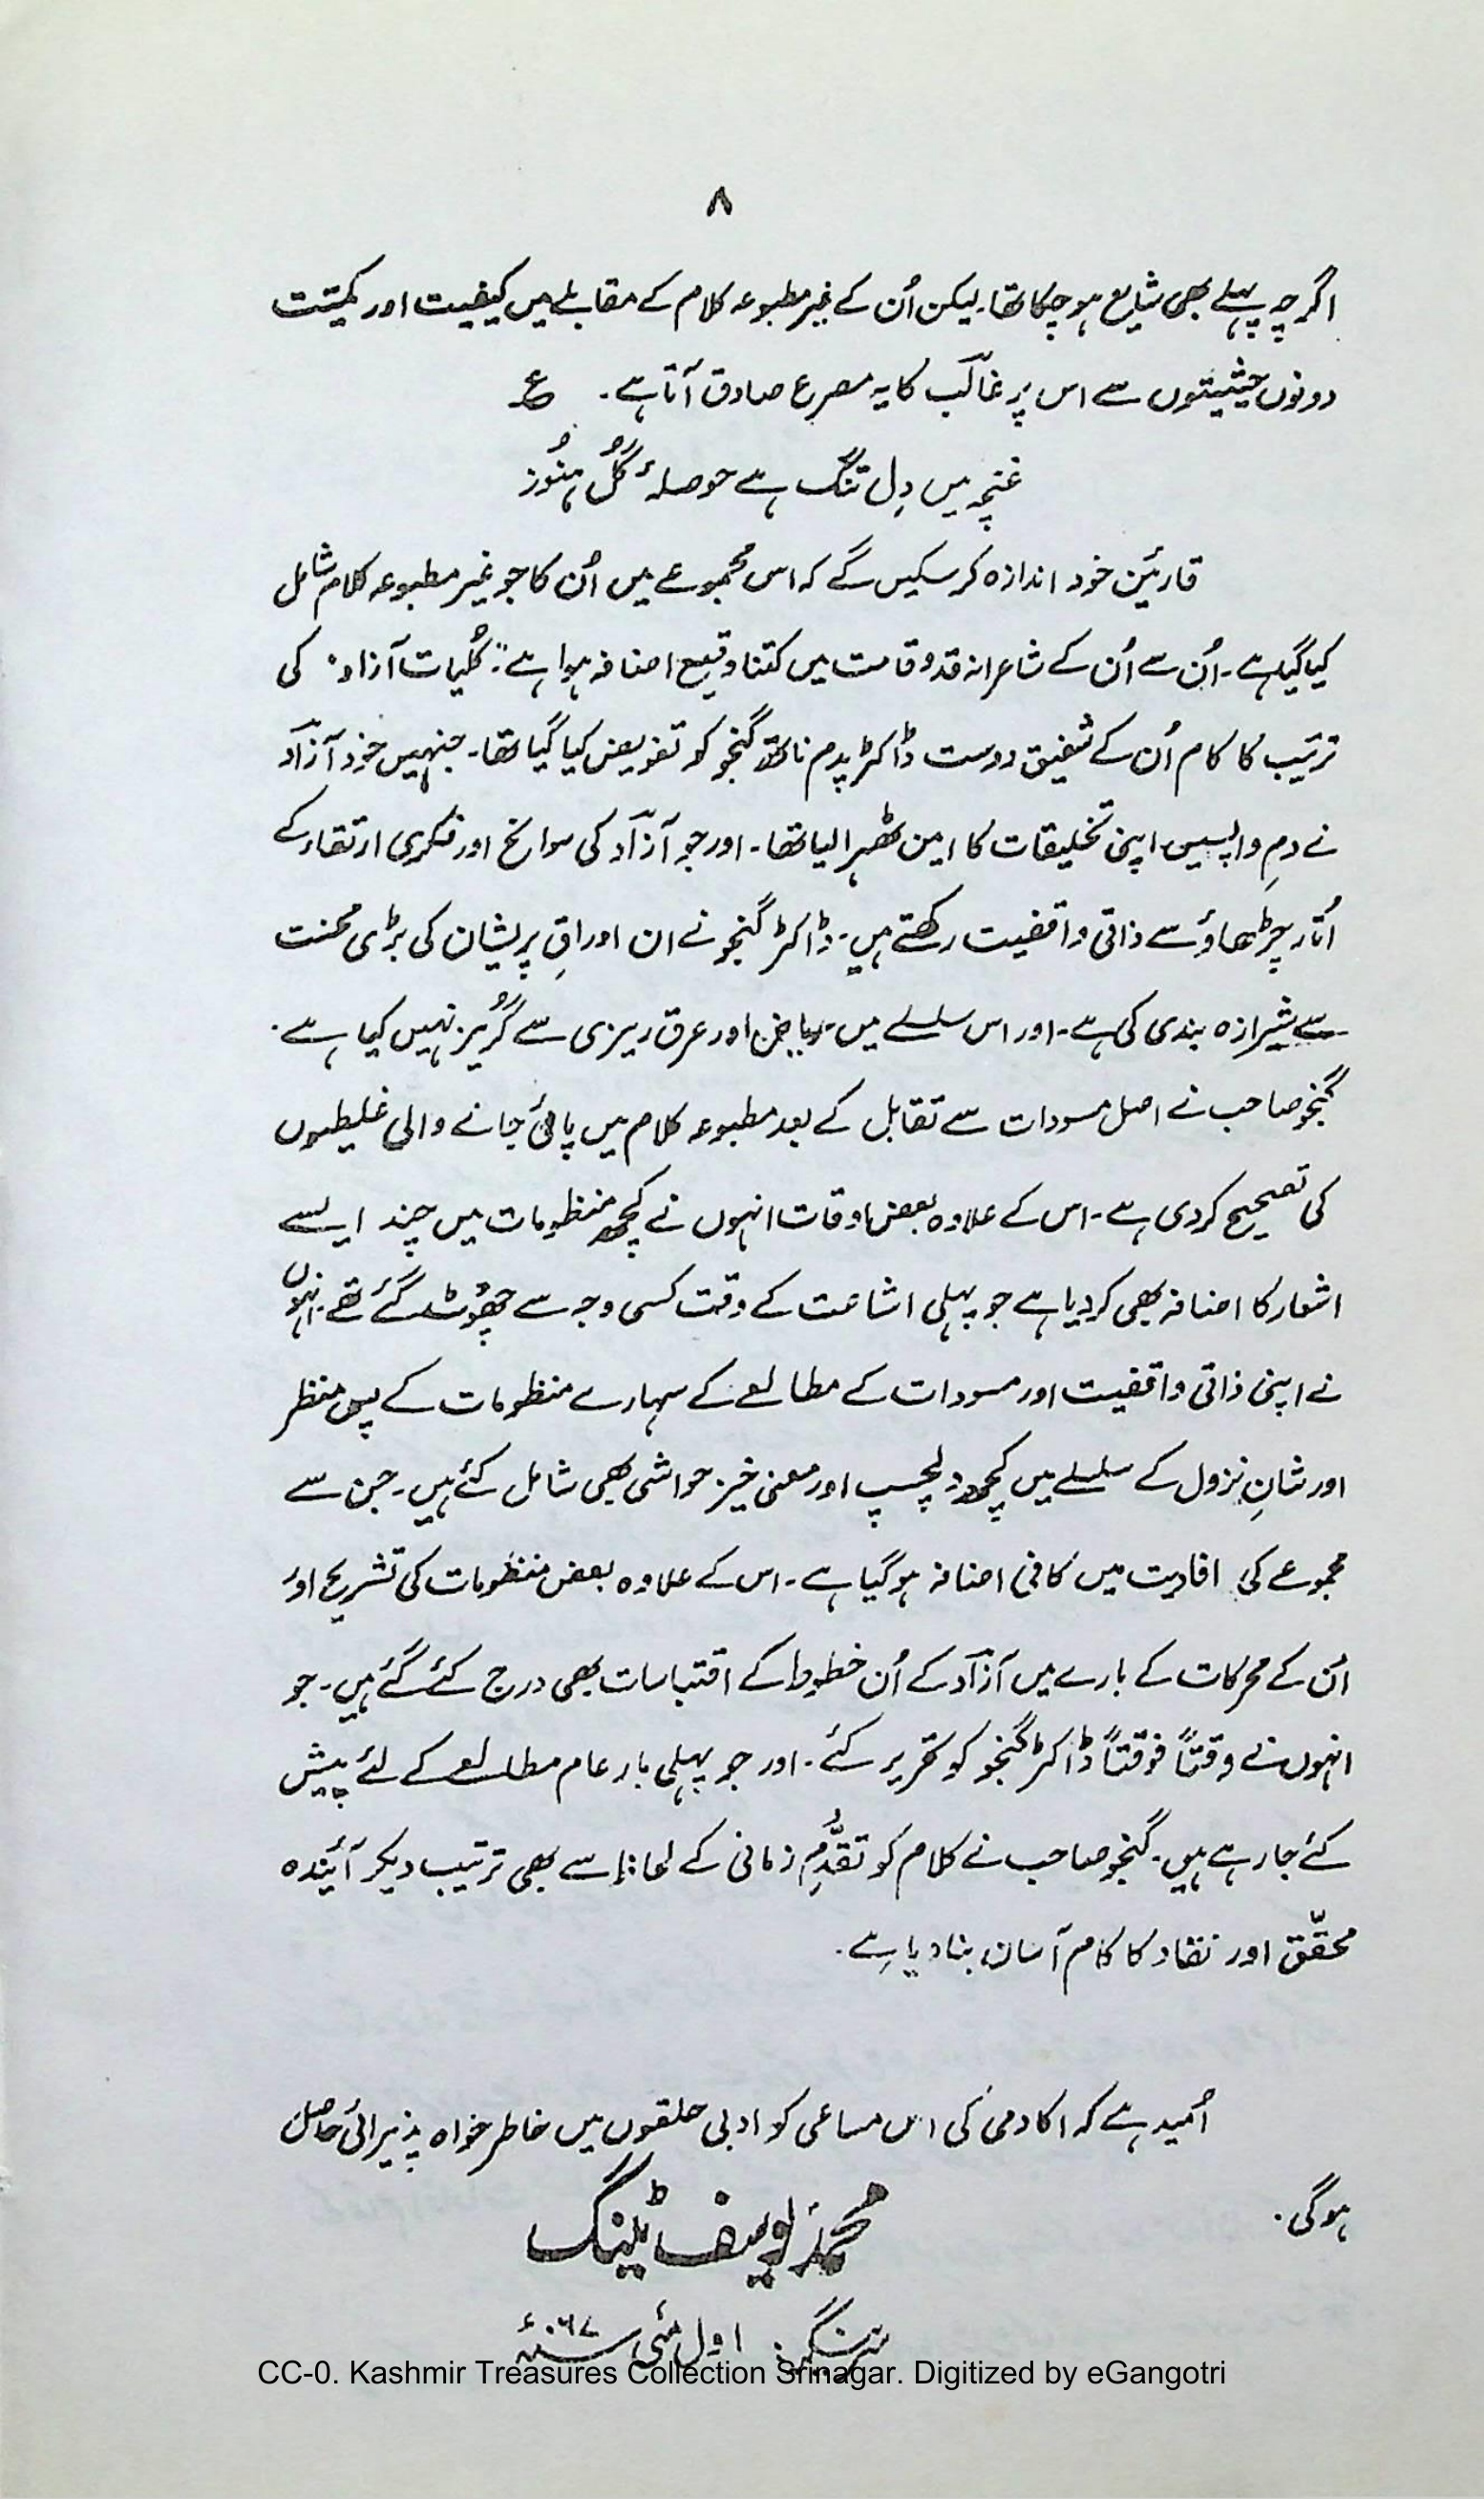 ۸
اگرچہ پہلے بھی شایع ہو چکا تھا۔ لیکن اُن کے غیر مطبوعہ کلام کے مقابلے میں کیفیت اور کمیّت
دونوں حیثیتوں سے اس پر غالؔب کا یہ مصرع صادق آتا ہے۔ ع
غنچہ میں دِل تنگ ہے حوصلۂ گُل ہنُوز
قارئین خود اندازہ کر سکیں گے کہ اس مجموعے میں اُن کا جو غیر مطبوعہ کلام شامل
کیا گیا ہے۔ اُن سے اُن کے شاعرانہ قد و قامت میں کتنا وقیع اضافہ ہوا ہے۔ "کُلیات آزاد" کی
ترتیب کا کام اُن کے شفیق دوست ڈاکٹر پدم ناتھ گنجو کو تفویض کیا گیا تھا۔ جنہیں خود آزاؔد
نے دمِ واپسیں اپنی تخلیقات کا امین ٹھہرا لیا تھا۔ اور جو آزاؔد کی سوانح اور فکری ارتقاء کے
اُتار چڑھاؤ سے ذاتی واقفیت رکھتے ہیں۔ ڈاکٹر گنجو نے ان اوراقِ پریشان کی بڑی محنت
سے شیرازہ بندی کی ہے۔ اور اس سلسلے میں ریاض اور عرق ریزی سے گُریز نہیں کیا ہے۔
گنجو صاحب نے اصل مسودات سے تقابل کے بعد مطبوعہ کلام میں پائی جانے والی غلیطیوں
کی تصحیح کر دی ہے۔ اس کے علاوہ بعض اوقات انہوں نے کچھ منظومات میں چند ایسے
اشعار کا اضافہ بھی کر دیا ہے جو پہلی اشاعت کے وقت کسی وجہ سے چھُوٹ گئے تھے۔ انہوں
نے اپنی ذاتی واقفیت اور مسودات کے مطالعے کے سہارے منظومات کے پس منظر
اور شانِ نزول کے سلسلے میں کچھ دلچسپ اور معنی خیز حواشی بھی شامل کئے ہیں۔ جن سے
مجموعے کی افادیت میں کافی اضافہ ہو گیا ہے۔ اس کے علاوہ بعض منظومات کی تشریح اور
اُن کے محرکات کے بارے میں آزاؔد کے اُن خطوط کے اقتباسات بھی درج کئے گئے ہیں۔ جو
انہوں نے وقتاً فوقتاً ڈاکٹر گنجو کو تحریر کئے۔ اور جو پہلی بار عام مطالعے کے لئے پیش
کئے جا رہے ہیں۔ گنجو صاحب نے کلام کو تقدُّمِ زمانی کے لحاظ سے بھی ترتیب دیکر آئیندہ
محقّق اور نقاد کا کام آسان بنا دیا ہے۔
اُمید ہے کہ اکادمی کی اس مساعی کو ادبی حلقوں میں خاطر خواہ پذیرائی حاصل
ہوگی۔
محمد یوسف ٹینگ
سرینگر۔ اول مئی
CC-0. Kashmir Treasures Collection Srinagar. Digitized by eGangotri